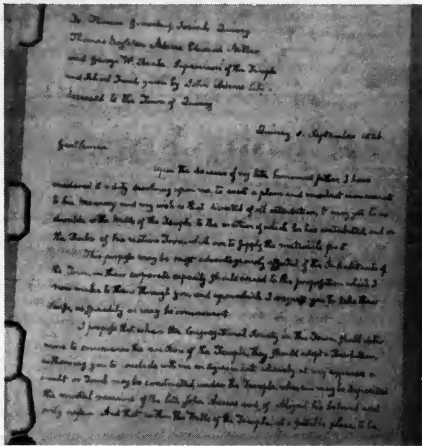 To Thomas Greenleaf, Josiah Quincy
Thomas Boylston Adams Edward Miller
and George W. Beale Supervisors of the Temple
and School Fund given by John Adams late
deceased to the Town of Quincy
Quincy 8. September 1826.
Gentlemen
Upon the decease of my late honoured father, I have
considered it a duty devolving upon me to erect a plain and modest monument
to his Memory and my wish is that divested of all ostentation, it may yet be as
durable as the Walls of the Temple to the erection of which he has contributed, and as
the Rocks of his native Town which are to supply the materials for it.
This purpose may be most advantageously effected if the Inhabitants of
the Town in their corporate capacity should accede to the proposition which I
now make to them through you, and upon which I request you to take their
as speedily as may be convenient.
I propose that when the Congregational Society in the Town shall deter
mine to commence the erection of the Temple, they should adopt a Resolution
authorizing you to conclude with me an Agreement whereby at my expense a
vault or Tomb may be constructed under the Temple, wherein may be deposited
the mortal remains of the late John Adams and of Abigail his beloved and
only wife. And that within the Walls of the Temple, at a suitable place, to be